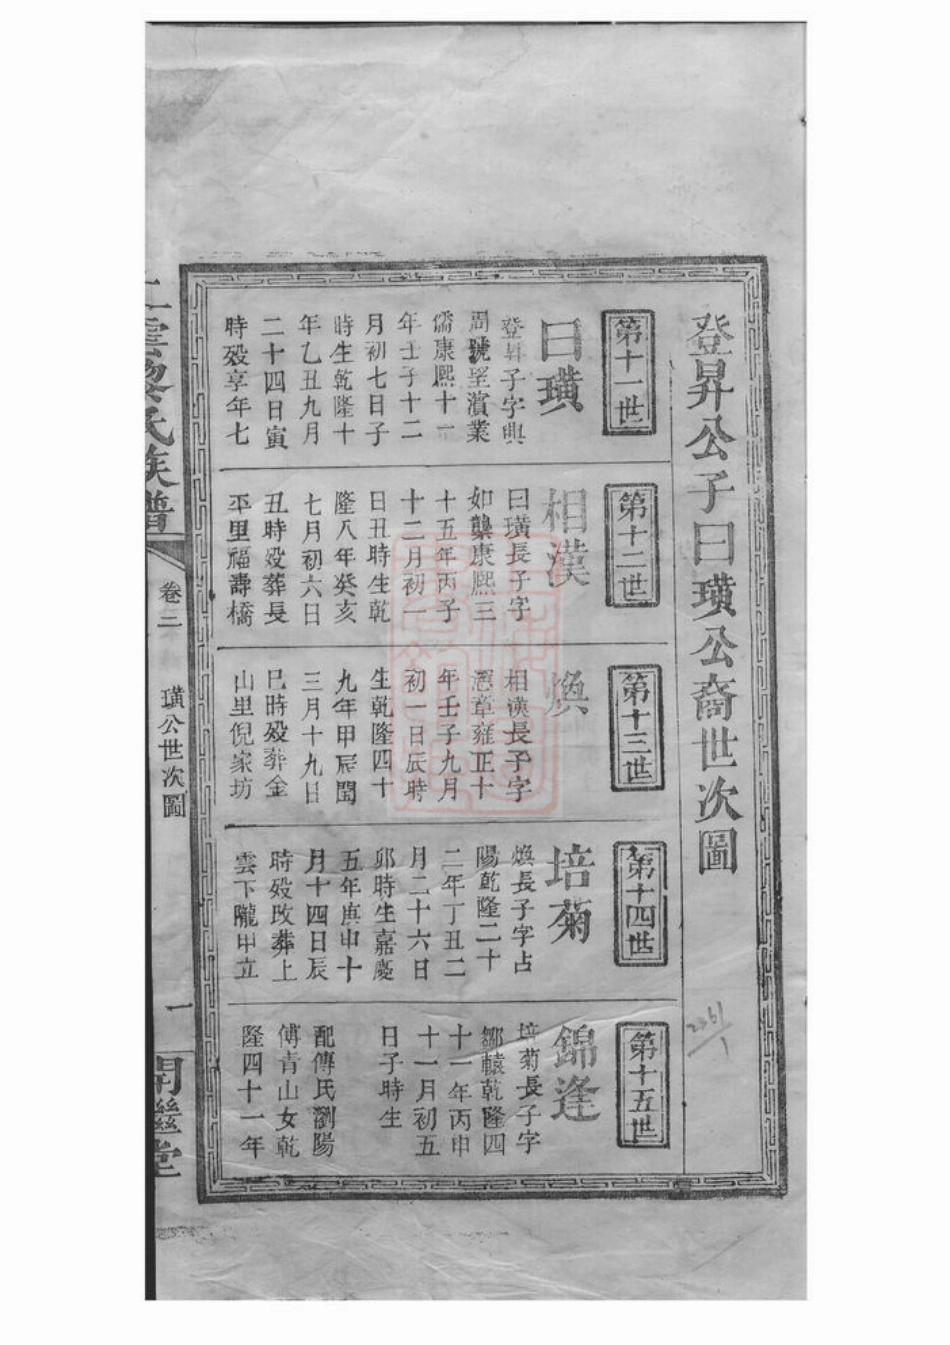 登昇公子曰璜公裔世次圖
第十一世
曰璜
登昇子字興
周號望濱業
儒康熙十一
年壬子十二
月初七日子
時生乾隆十
年乙丑九月
二十四日寅
時殁享年七
第十二世
相漢
曰璜長子字
如龔康熙三
十五年丙子
十二月初一
日丑時生乾
隆八年癸亥
七月初六日
丑時殁葬長
平里福壽橋
第十三世
煥
相漢長子字
憲章雍正十
年壬子九月
初一日辰時
生乾隆四十
九年甲辰閏
三月十九日
巳時殁葬金
山里倪家坊
第十四世
培菊
煥長子字占
陽乾隆二十
二年丁丑二
月二十六日
卯時生嘉慶
五年庚申十
月十四日辰
時殁改葬上
雲下隴甲立
第十五世
錦逢
培菊長子字
鄒轅乾隆四
十一年丙申
十一月初五
日子時生
配傅氏瀏陽
傅青山女乾
隆四十一年
雲黎氏族譜
卷二
璜公世次圖
一
開繼堂
2361